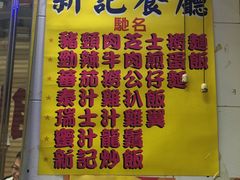 新記餐廳
馳名
豬頸肉芝士撈麵
勁辣牛肉煎蛋飯
蕃茄撈公仔麵
泰汁雞扒飯
瑞士汁雞翼
蜜汁龍鬚
新記炒飯